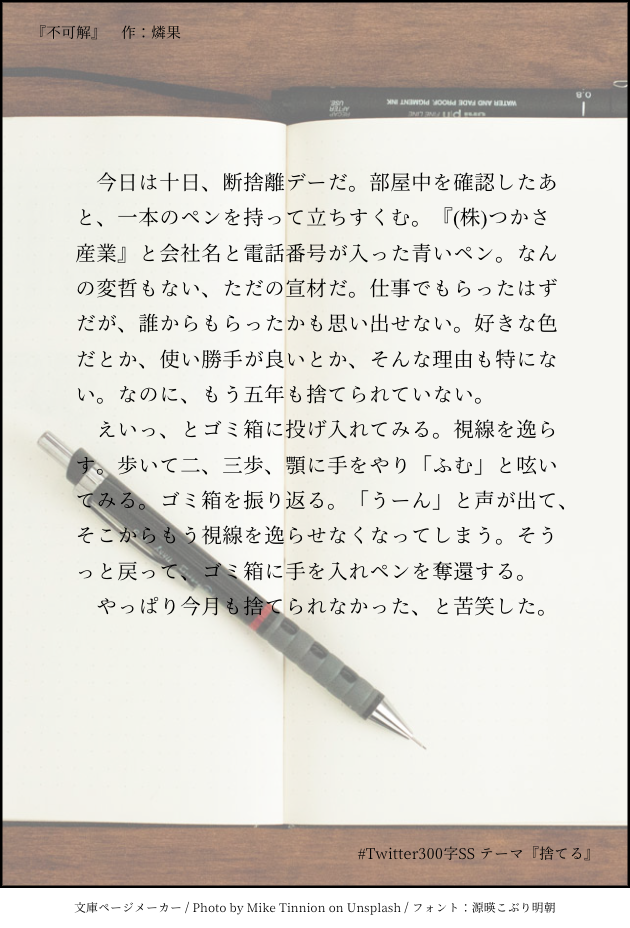 『不可解』　作：燐果
0.8
WATER AND FADE PROOF, PIGMENT INK
uni pin FINE LINE
RECAP
AFTER
USE
　今日は十日、断捨離デーだ。部屋中を確認したあ
と、一本のペンを持って立ちすくむ。『(株)つかさ
産業』と会社名と電話番号が入った青いペン。なん
の変哲もない、ただの宣材だ。仕事でもらったはず
だが、誰からもらったかも思い出せない。好きな色
だとか、使い勝手が良いとか、そんな理由も特にな
い。なのに、もう五年も捨てられていない。
　えいっ、とゴミ箱に投げ入れてみる。視線を逸ら
す。歩いて二、三歩、顎に手をやり「ふむ」と呟い
てみる。ゴミ箱を振り返る。「うーん」と声が出て、
そこからもう視線を逸らせなくなってしまう。そう
っと戻って、ゴミ箱に手を入れペンを奪還する。
　やっぱり今月も捨てられなかった、と苦笑した。
#Twitter300字SS テーマ『捨てる』
文庫ページメーカー / Photo by Mike Tinnion on Unsplash / フォント：源暎こぶり明朝